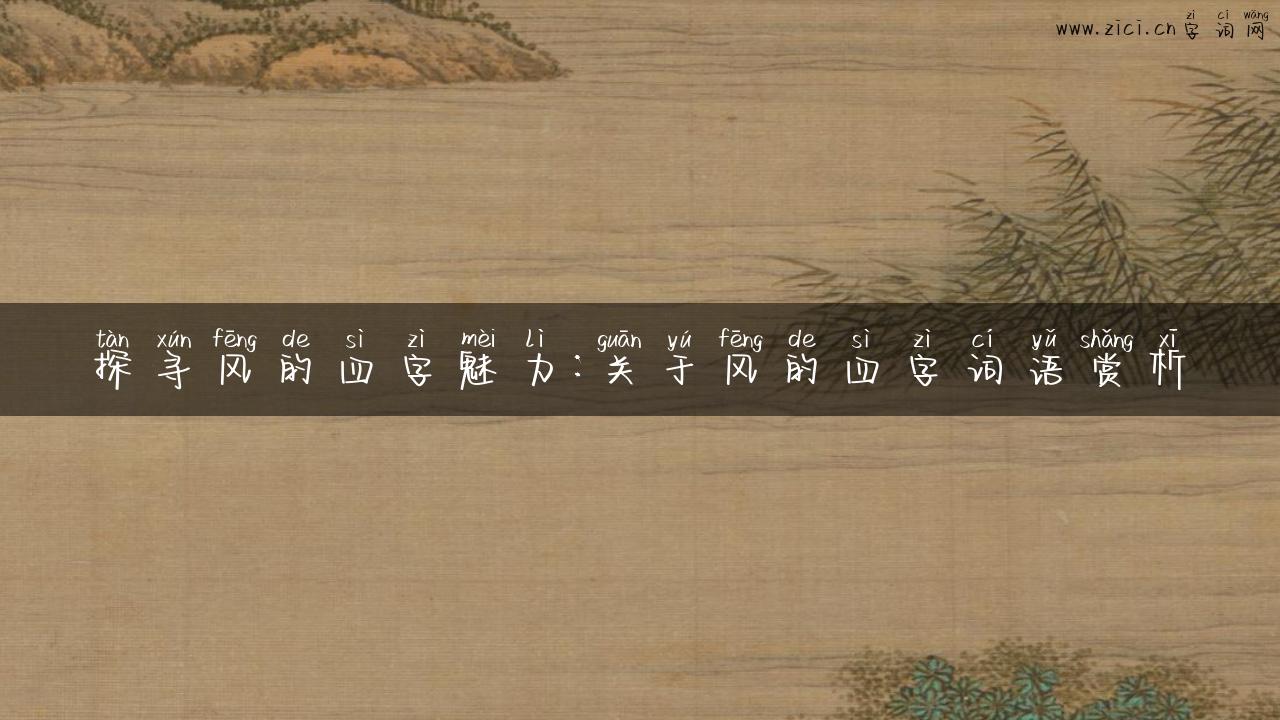 zì cí wǎng
www.zici.cn 字词网
tàn xún fēng de sì zì mèi lì guān yú fēng de sì zì cí yǔ shǎng xī
探寻风的四字魅力:关于风的四字词语赏析